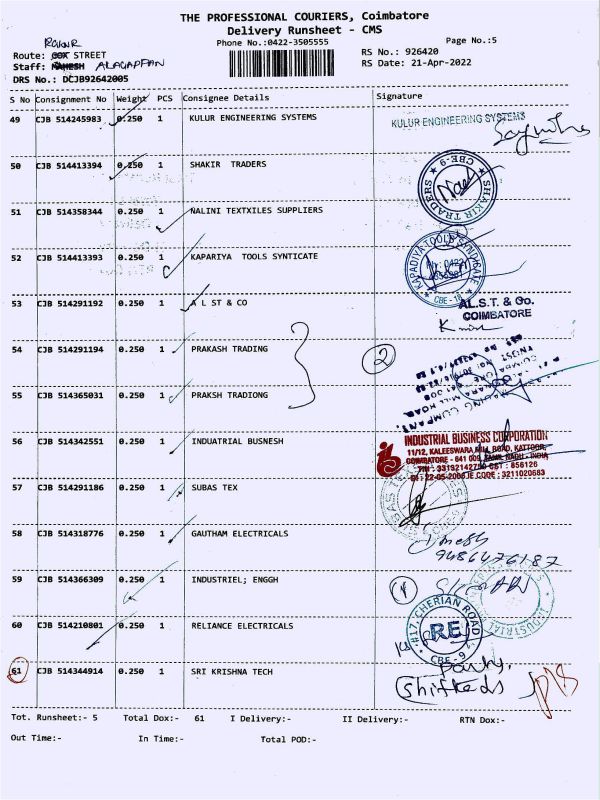 THE PROFESSIONAL COURIERS, Coimbatore
Delivery Runsheet - CMS
Phone No.:0422-3505555
Page No.:5
Route: COX STREET
RS No.: 926420
Staff: ALAGAPPAN
RS Date: 21-Apr-2022
DRS No.: DCJB92642005
S No Consignment No Weight PCS Consignee Details Signature
49 CJB 514245983 0.250 1 KULUR ENGINEERING SYSTEMS KULUR ENGINEERING SYSTEMS
50 CJB 514413394 0.250 1 SHAKIR TRADERS
SHAKIR TRADERS CBE-9
51 CJB 514358344 0.250 1 NALINI TEXTXILES SUPPLIERS
52 CJB 514413393 0.250 1 KAPARIYA TOOLS SYNTICATE
KAPADIYA TOOLS SYNDICATE CBE - 18
53 CJB 514291192 0.250 1 A L ST & CO AL.S.T. & Co.
COIMBATORE
54 CJB 514291194 0.250 1 PRAKASH TRADING 2
55 CJB 514365031 0.250 1 PRAKSH TRADIONG
56 CJB 514342551 0.250 1 INDUATRIAL BUSNESH INDUSTRIAL BUSINESS CORPORATION
11/12, KALEESWARA MILL ROAD, KATTOOR,
COIMBATORE - 641 009, TAMIL NADU - INDIA
57 CJB 514291186 0.250 1 SUBAS TEX
58 CJB 514318776 0.250 1 GAUTHAM ELECTRICALS
9486476187
59 CJB 514366309 0.250 1 INDUSTRIEL; ENGGH
60 CJB 514210801 0.250 1 RELIANCE ELECTRICALS
#17, CHERIAN ROAD
RE
CBE-9
61 CJB 514344914 0.250 1 SRI KRISHNA TECH party
Shifted
Tot. Runsheet:- 5 Total Dox:- 61 I Delivery:- II Delivery:- RTN Dox:-
Out Time:- In Time:- Total POD:-